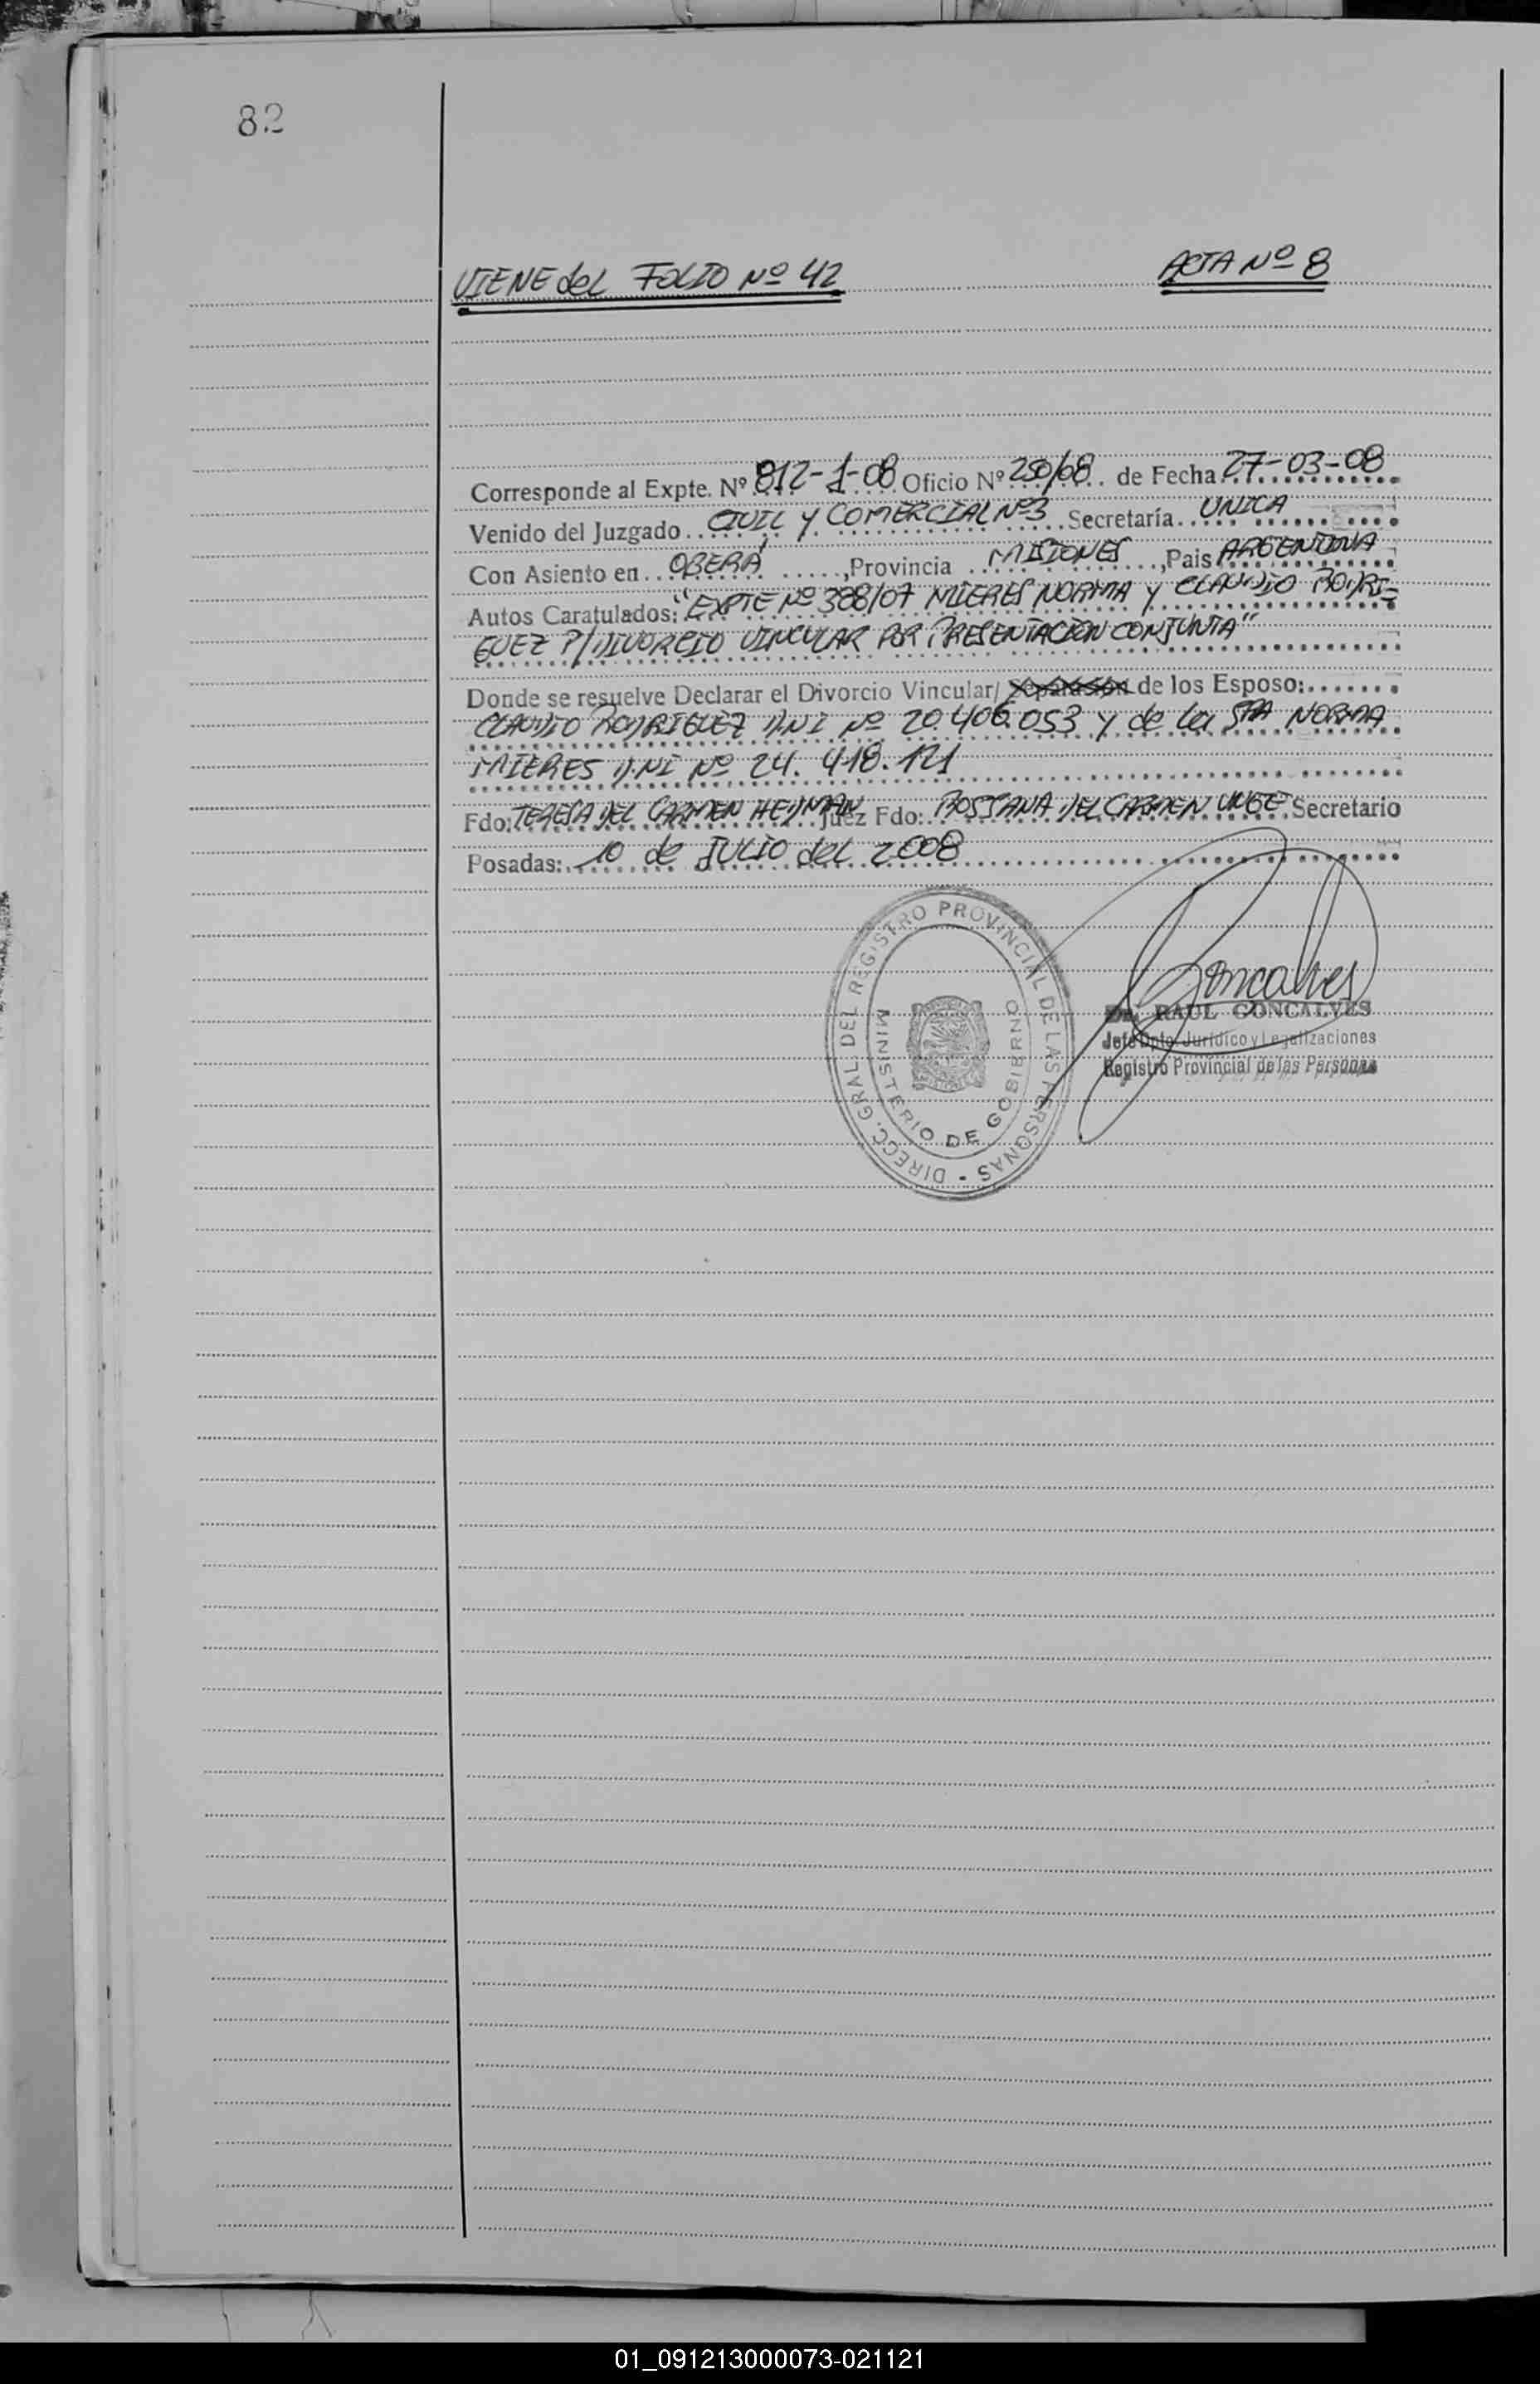 82
VIENE del FOLIO Nº 42 ACTA Nº 8
Corresponde al Expte. Nº 812-1-08 Oficio Nº 250/08 de Fecha 27-03-08
Venido del Juzgado CIVIL Y COMERCIAL Nº3 Secretaría UNICA
Con Asiento en OBERÁ, Provincia MISIONES, Pais ARGENTINA
Autos Caratulados: "EXPTE Nº 388/07 MIERES NORMA Y CLAUDIO RODRI-
GUEZ P/DIVORCIO VINCULAR POR PRESENTACIÓN CONJUNTA"
Donde se resuelve Declarar el Divorcio Vincular/ Separación de los Esposo:
CLAUDIO RODRIGUEZ D.N.I Nº 20.406.053 Y de la STA NORMA
MIERES D.NI Nº 24.418.121
Fdo: TERESA DEL CARMEN HEDMAN Juez Fdo: ROSSANA DEL CARMEN Secretario
Posadas: 10 de JULIO del 2008
DIRECC. GRAL. DEL REGISTRO PROVINCIAL DE LAS PERSONAS -
MINISTERIO DE GOBIERNO
Goncalves
Dr. RAUL GONCALVES
Jefe Dpto. Jurídico y Legalizaciones
Registro Provincial de las Personas
01_091213000073-021121